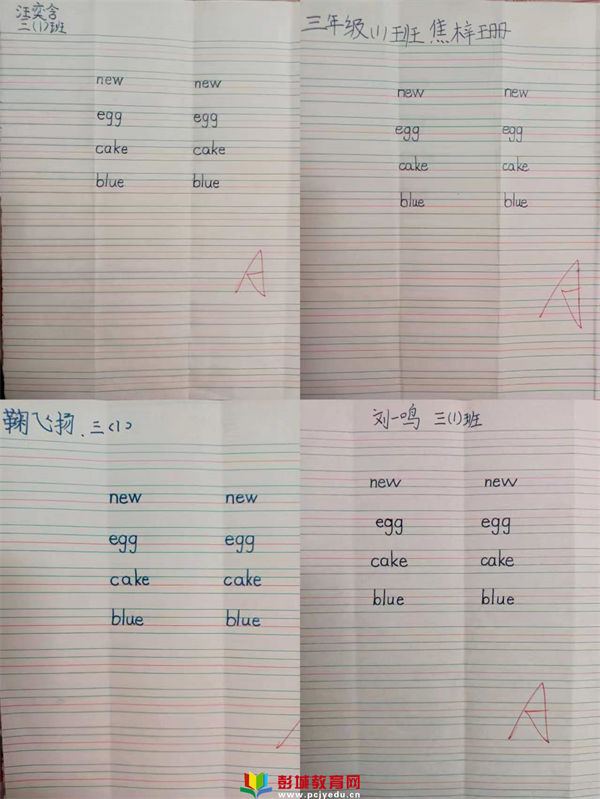 汪奕含
三(1)班
new new
egg egg
cake cake
blue blue
A
三年级(1)班 焦梓珊
new new
egg egg
cake cake
blue blue
A
鞠飞扬、三(1)
new new
egg egg
cake cake
blue blue
刘一鸣 三(1)班
new new
egg egg
cake cake
blue blue
A
彭城教育网
www.pcjyedu.cn